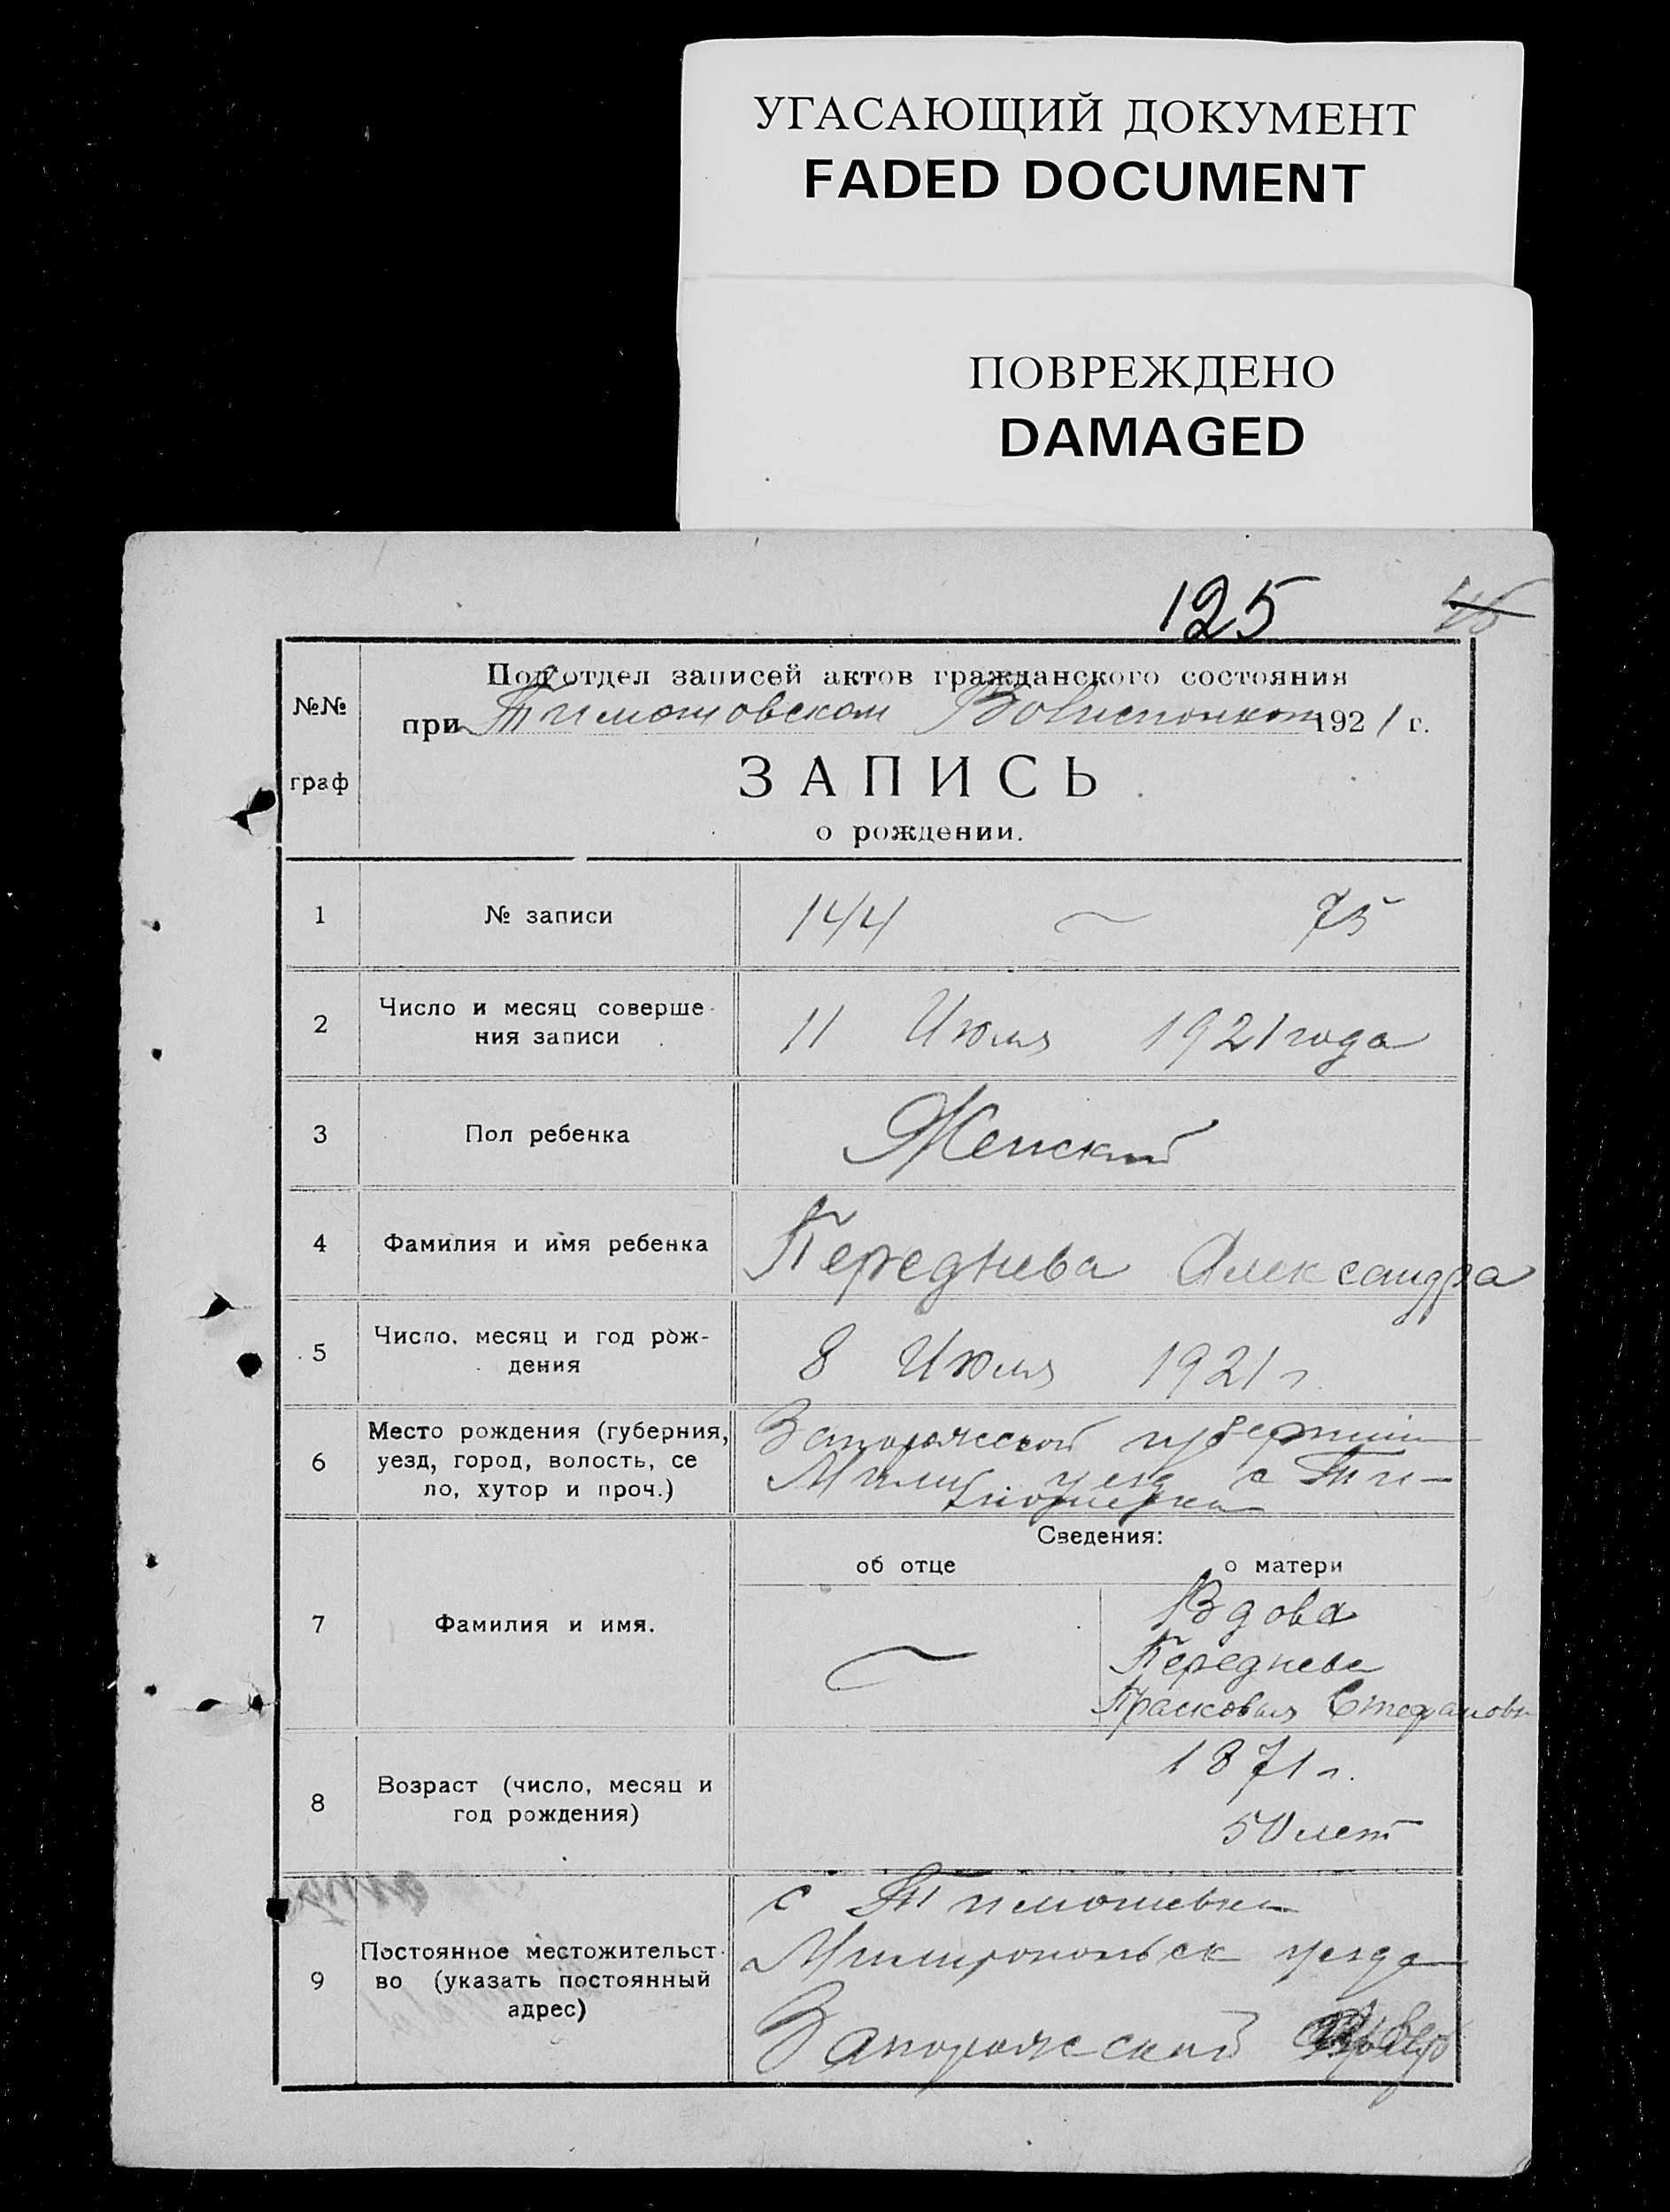 УГАСАЮЩИЙ ДОКУМЕНТ
FADED DOCUMENT
ПОВРЕЖДЕНО
DAMAGED
125 45
Под'отдел записей актов гражданского состояния
№№
при Тимошовском Волисполком 1921 г.
граф
ЗАПИСЬ
о рождении.
1 № записи 144 ~ 75
2 Число и месяц соверше-
ния записи
11 Июля 1921 года
3 Пол ребенка Женский
4 Фамилия и имя ребенка Переднева Александра
5 Число, месяц и год рож-
дения
8 Июля 1921 г
6 Место рождения (губерния,
уезд, город, волость, се
ло, хутор и проч.)
Запорожской губернии
Мелит уезд с Ти-
мошевка
Сведения:
об отце о матери
7 Фамилия и имя.
Вдова
Переднева
Прасковья Стефановн
8 Возраст (число, месяц и
год рождения)
1871 г.
50 лет
9 Постоянное местожительст-
во (указать постоянный
адрес)
с Тимошевки
Мелитопольск уезда
Запорожской